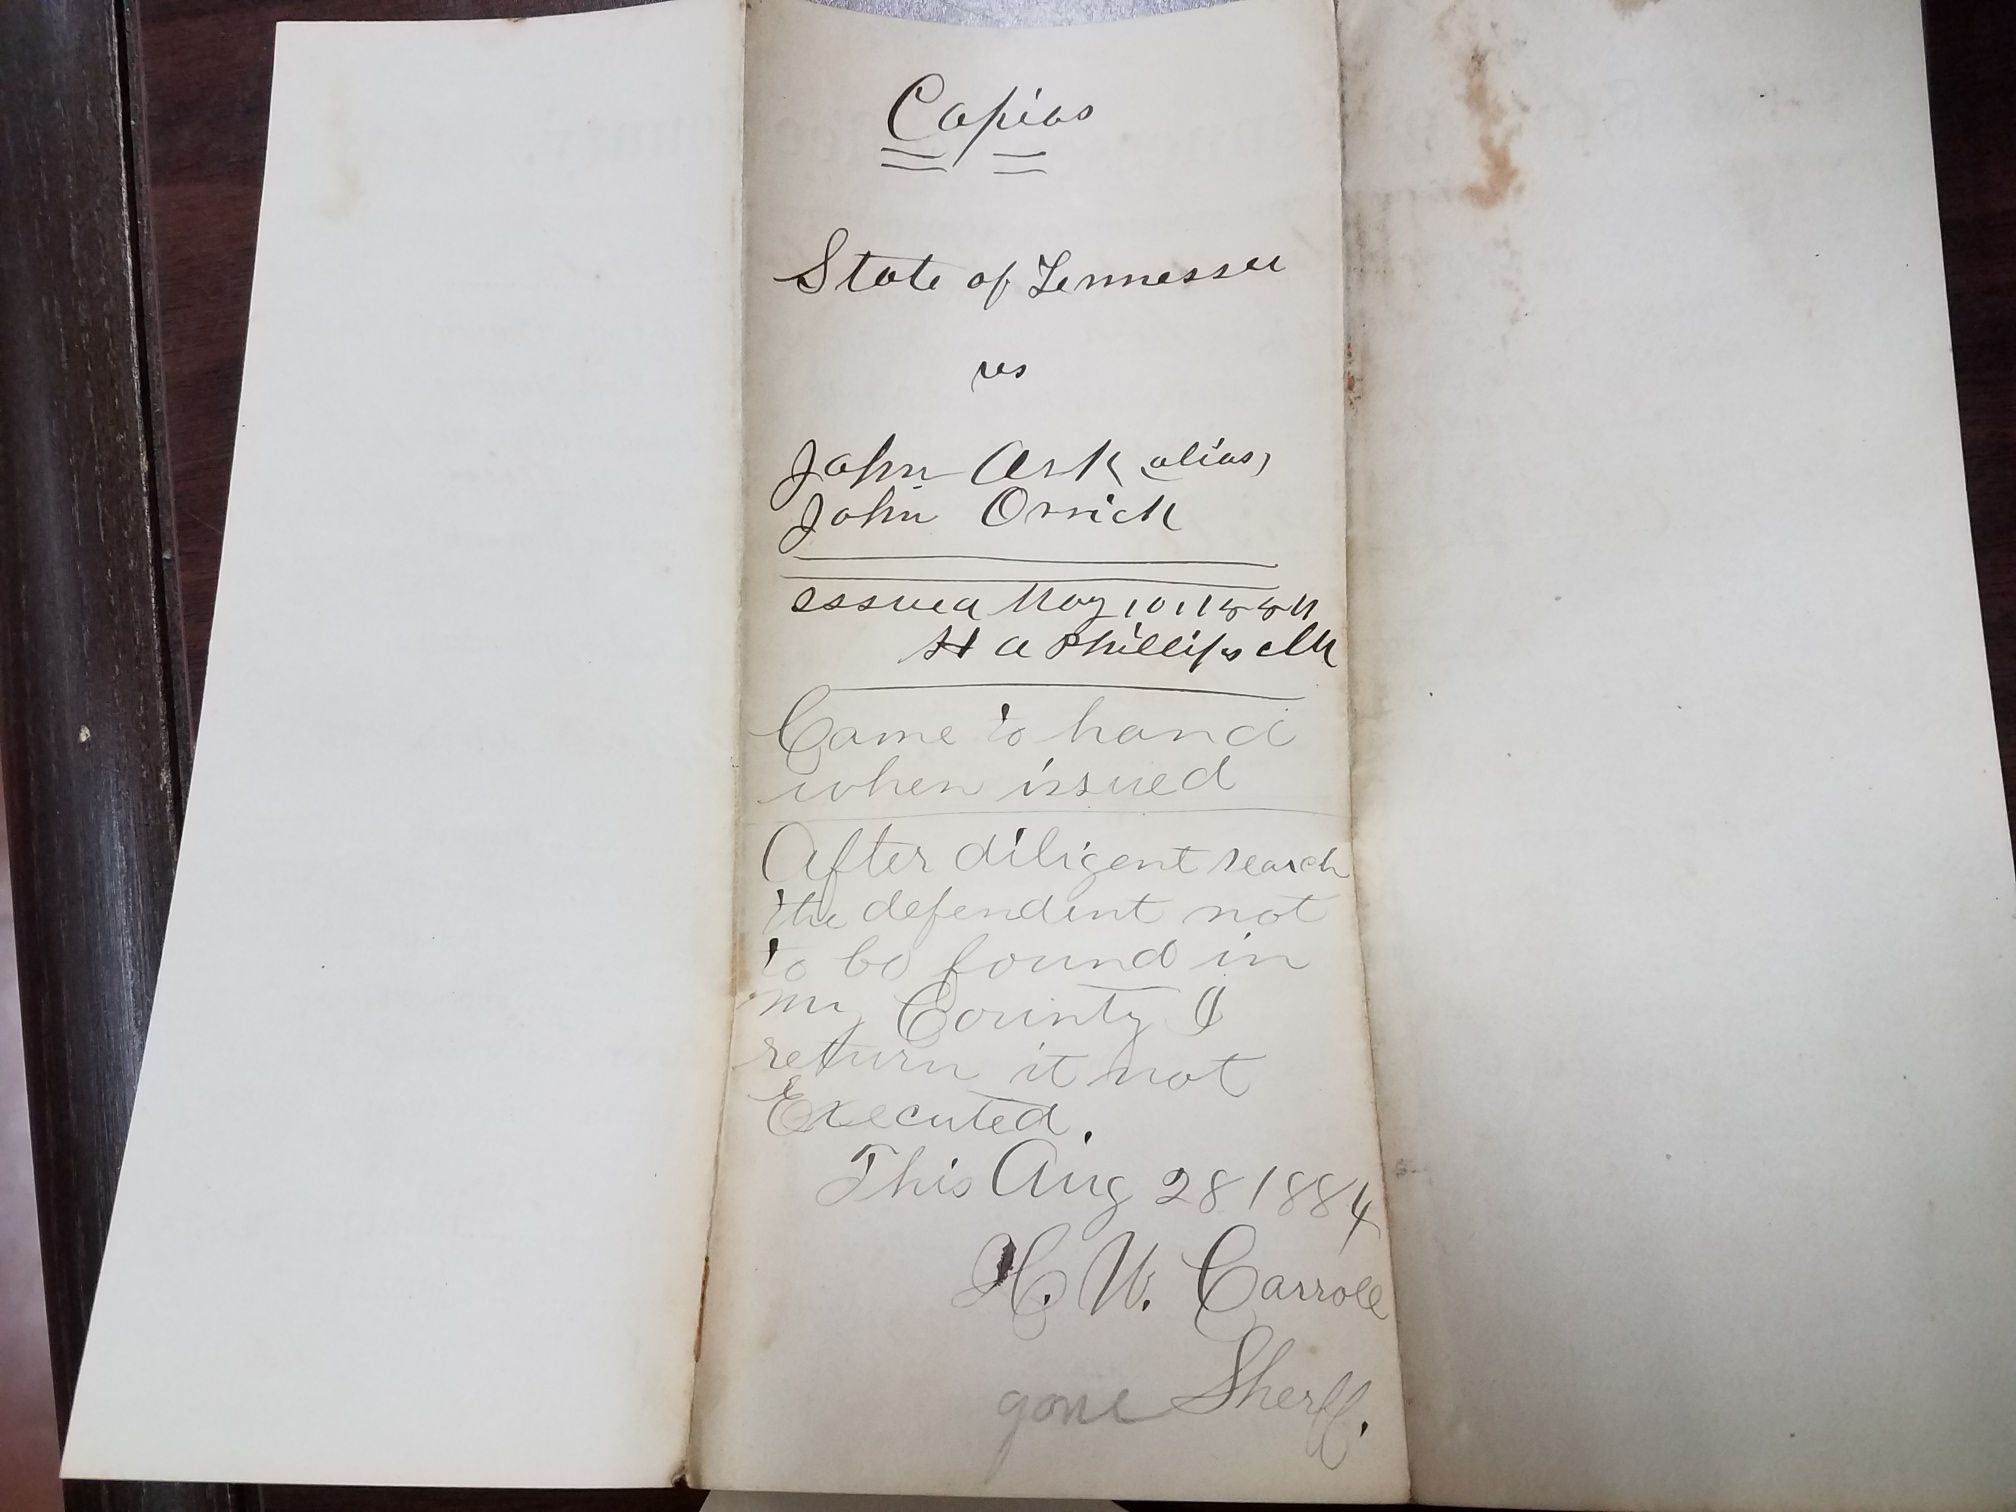 Capias
State of Tennessee
vs
John Ark alias,
John Orrick
issued May 10, 1884
H A Phillips Clk
Came to hand
when issued
After diligent search
the defendent not
to be found in
my County I
return it not
Executed.
This Aug 28 1884
H. W. Carroll
Sherff.
gone